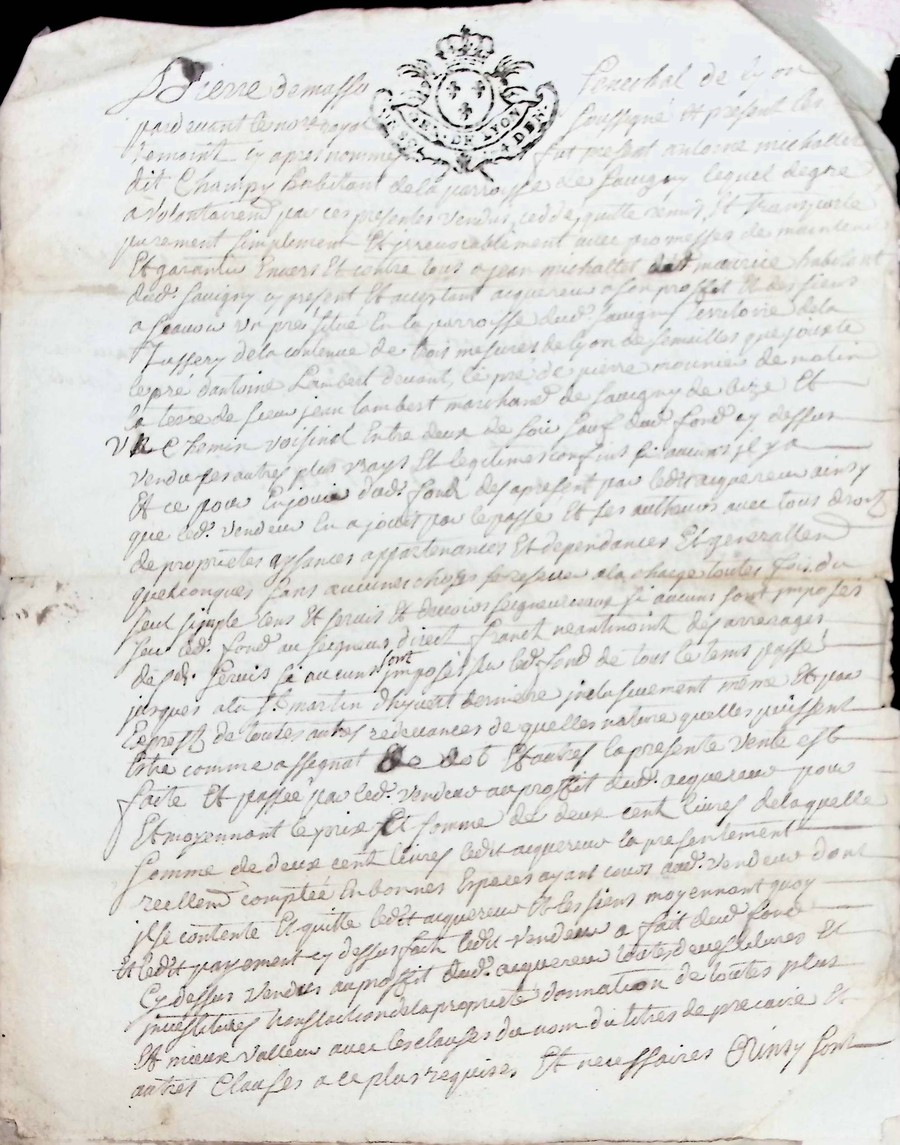 Pierre demasso Senechal de Lyon
GEN. DE LYON
pardevant le no.re royal soussigné et présent les
temoins cy apres nommés fut present antoine michallet
dit Champy habitant de la parroisse de Savigny lequel de gre
a volontairem.t par ces presentes vendus, cedde, quitte remis et transporte
purement simplement Et irrevocablement avec promesses de maintenir
Et garantir Envers Et contre tous a jean michallet dit maurice habitant
dud. Savigny cy present Et acceptant acquereur a son proffit Et des siens
a scavoir un pré situé En la parroisse dud. Savigny territoire de la
de la contenue de trois mesures de lyon de semailles que jouxte
le pré d'antoine Lambert devant, le pré de pierre mounier de matin
la terre de sieur jean lambert marchand de Savigny de bize Et
un Chemin voisinal Entre deux de soir sauf dud. fond cy dessus
vendu ses autres plus vrays Et legitimes confins si aucuns jl y a
Et ce pour En jouir dud. fond des apresent par ledit acquereur ainsy
que led. vendeur En a jouit par le passé Et ses autheurs avec tous droits
de proprietes aysances appartenances Et dependances Et generallem
quelconques sans aucunes choses se reserver a la charge toutes fois du
seul simple cens Et servis Et devoirs seigneuriaux si aucuns sont imposés
sur led. fond au seigneur direct franct neantmoint des arrerages
desd. servis si aucuns sont imposés sur led. fond de tous le tems passé
jusques a la St martin d'hyvert derniere jnclusivement même Et par
Exprest de toutes autres redevances de quelles nature quelles puissent
Etre comme assegnat de dot Et autres la presente vente est
faite Et passée par led. vendeur au proffit dud. acquereur pour
Et moyennant le prix Et somme de deux cent livres de laquelle
somme de deux cent livres ledit acquereur la presentement
reellem.t comptée En bonnes Especes ayant cours aud. vendeur dont
jl se contente Et quitte ledit acquereur Et les siens moyennant quoy
Et ledit payement cy dessus fait ledit vendeur a fait dud. fond
Cy dessus vendus au proffit dud. acquereur toutes devestitures Et
jnvestitures translaction de la proprieté donnation de toutes plus
Et mieux valleur avec les clauses du nom du titres de precaire Et
autres Clauses a ce plus requises Et necessaires Ainsy sont